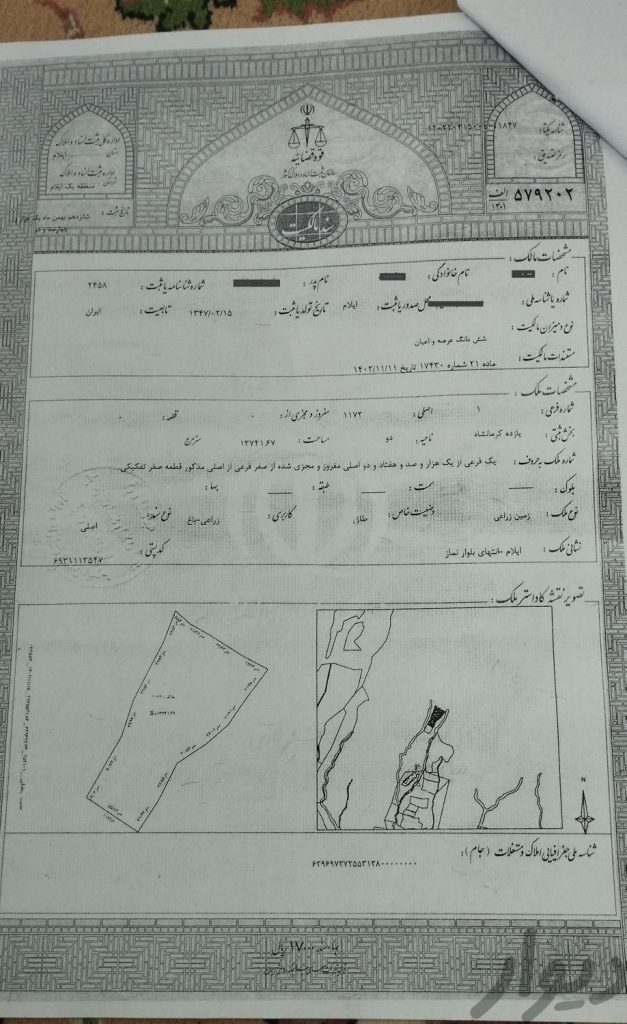 قوه قضائیه
سازمان ثبت اسناد و املاک کشور
اداره کل ثبت اسناد و املاک
استان ایلام
اداره ثبت اسناد و املاک
منطقه یک ایلام
تاریخ ثبت : شانزدهم بهمن ماه یک هزار و چهارصد و دو
شناسه یکتا :
رمز تصدیق :
۵۷۹۲۰۲ الف ۱۴۰۱
سند مالکیت
مشخصات مالک :
نام : نام خانوادگی : نام پدر : شماره شناسنامه یا ثبت : ۲۴۵۸
شماره یا شناسه ملی : محل صدور یا ثبت : ایلام تاریخ تولد یا ثبت : ۱۳۴۷/۰۲/۱۵ تابعیت : ایران
نوع و میزان مالکیت : شش دانگ عرصه و اعیان
مستندات مالکیت : ماده ۲۱ شماره ۱۷۴۳۰ تاریخ ۱۴۰۲/۱۱/۱۱
مشخصات ملک :
شماره فرعی : ۱ اصلی : ۱۱۷۲ مفروز و مجزی از : ۰ قطعه : ۰
بخش ثبتی : یازده کرمانشاه ناحیه : دو مساحت : ۱۳۷۴۱۶۷ مترمربع
شماره ملک به حروف : یک فرعی از یک هزار و صد و هفتاد و دو اصلی مفروز و مجزی شده از صفر فرعی از اصلی مذکور قطعه صفر تفکیکی
بلوک : سمت : طبقه : بها :
نوع ملک : زمین زراعی وضعیت خاص : طلق کاربری : زراعی-باغ نوع سند : اصلی
نشانی ملک : ایلام -انتهای بلوار نماز کد پستی : ۶۹۳۱۱۱۳۵۴۷
تصویر نقشه کاداستر ملک :
N
شناسه ملی جغرافیایی املاک و مستغلات (جام) :
۶۲۹۶۹۷۳۷۲۵۵۳۱۳۸۰۰۰۰۰۰۰۰
بها سند ۱۷۰۰۰ ریال
دیوار